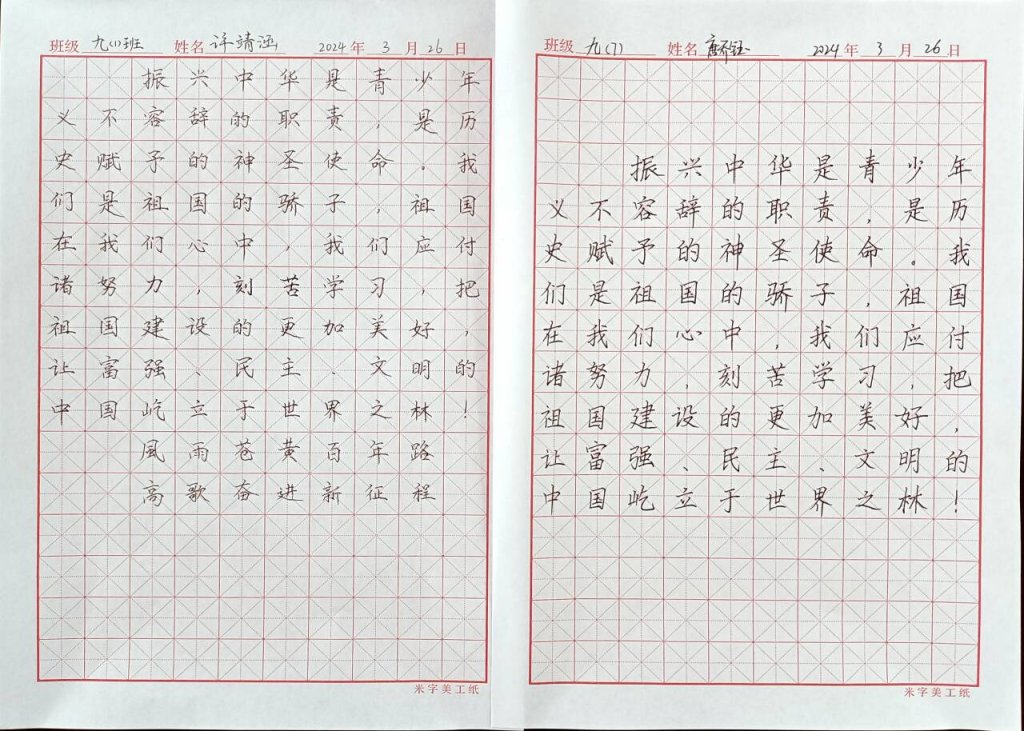 班级 九(1)班 姓名 许靖涵 2024年3月26日
振兴中华是青少年
义不容辞的职责，是历
史赋予的神圣使命。我
们是祖国的骄子，祖国
在我们心中，我们应付
诸努力，刻苦学习，把
祖国建设的更加美好，
让富强、民主、文明的
中国屹立于世界之林！
風雨苍黄百年路
高歌奋进新征程
米字美工纸
班级 九(7) 姓名 2024年3月26日
振兴中华是青少年
义不容辞的职责，是历
史赋予的神圣使命。我
们是祖国的骄子，祖国
在我们心中，我们应付
诸努力，刻苦学习，把
祖国建设的更加美好，
让富强、民主、文明的
中国屹立于世界之林！
米字美工纸